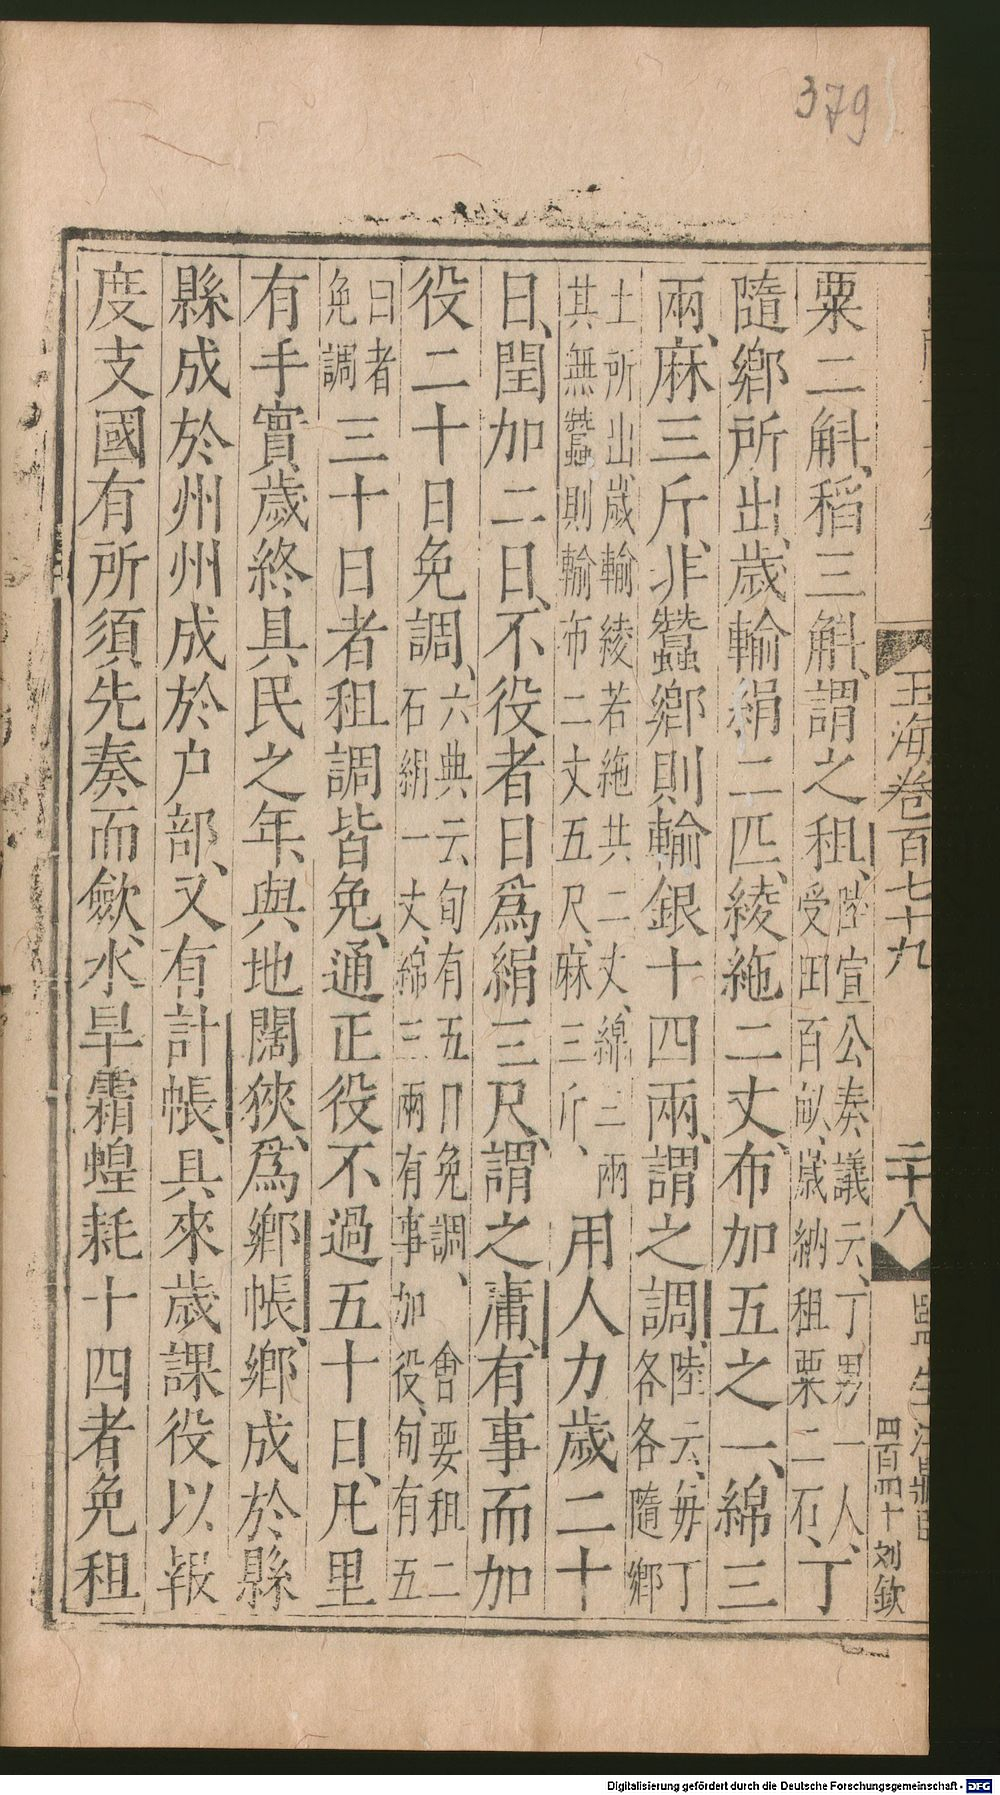 379
玉海卷百七十九
二十八
四百四十
刘欽
粟二斛、稻三斛、謂之租、陸宣公奏議云、丁男一人、受田百畝、歳納租粟二石、丁
隨鄉所出、歲輸絹二匹、綾絁二丈、布加五之一、綿三
兩、麻三斤、非蠶鄉則輸銀十四兩、謂之調、陸云、毎丁各各隨鄉
土所出、歲輸綾若絁共二丈、綿三兩其無蠶、則輸布二丈五尺、麻三斤、用人力歲二十
日、閏加二日、不役者日爲絹三尺、謂之庸、有事而加
役二十日免調、六典云、旬有五日免調、會要租二石絹一丈、綿三兩有事加役、旬有五
日者免調三十日者租調皆免、通正役不過五十日、凡里
有手實歲終具民之年、與地闊狹、爲鄉帳、鄉成於縣
縣成於州州成於户部、又有計帳、具來歲課役以報
度支國有所須先奏而歛、水旱霜蝗耗十四者免租
Digitalisierung gefördert durch die Deutsche Forschungsgemeinschaft - DFG